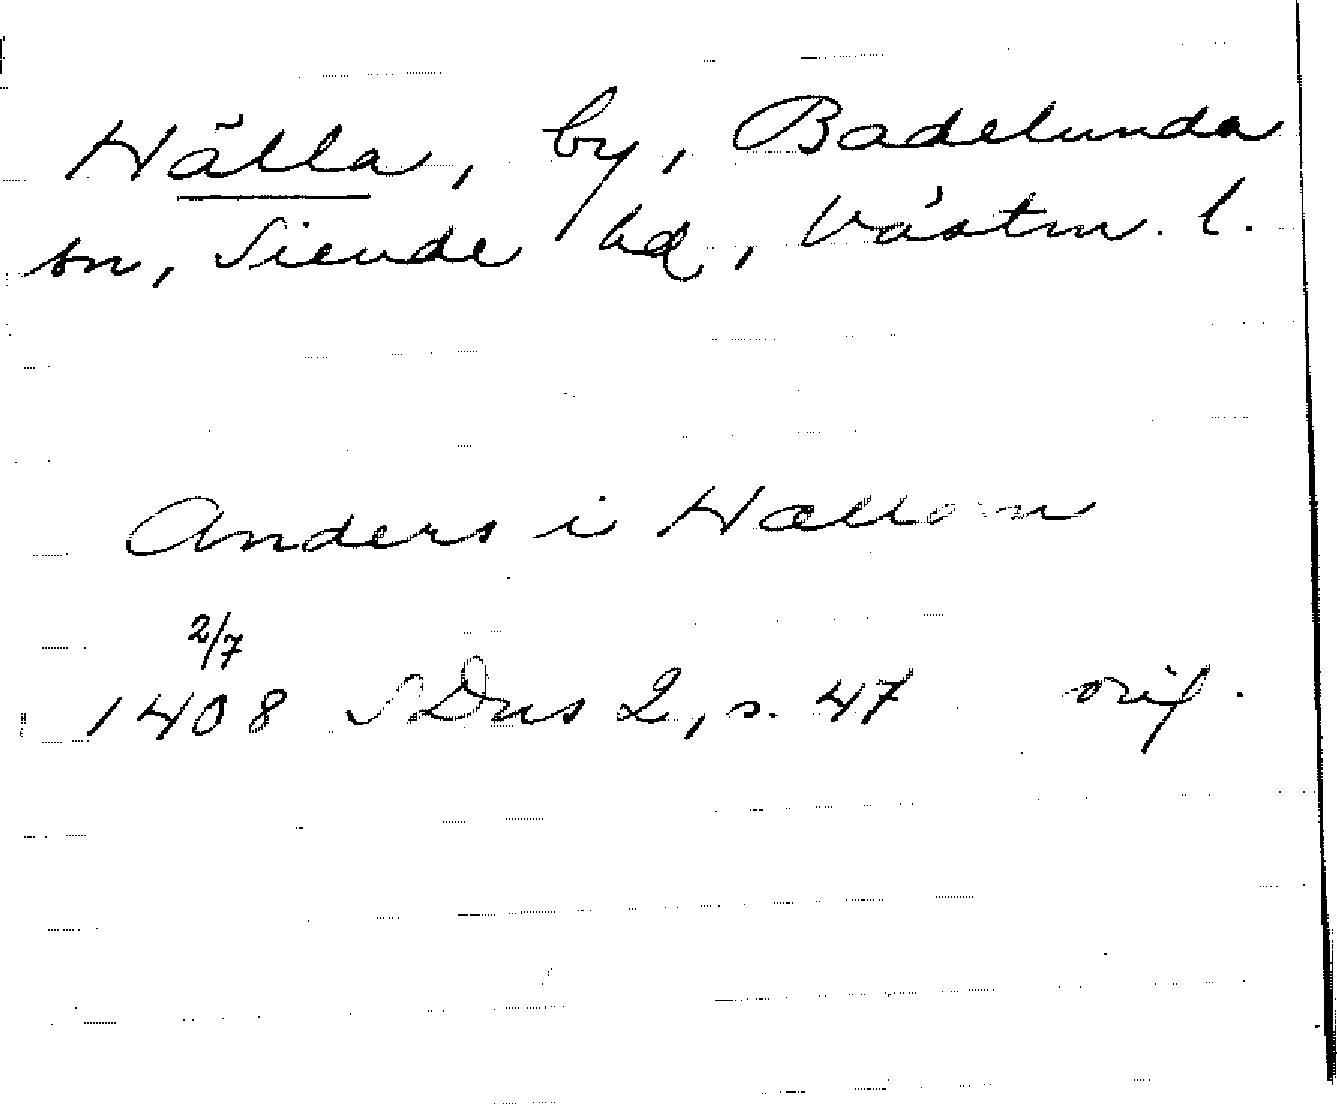 Hälla, by, Badelunda
sn, Siende hd, Västm. l.
Anders i Hællom
2/7
1408 SDns 2, s. 47 orig.